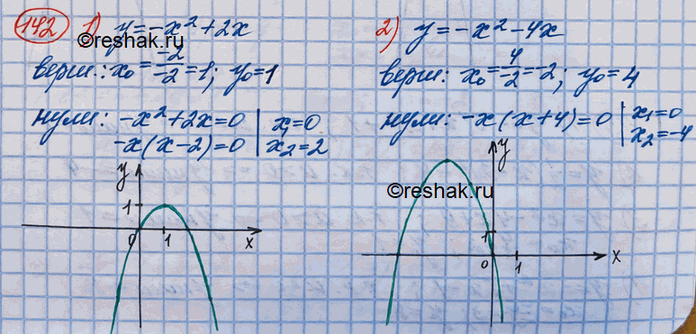 142 1) y = -x² + 2x
©reshak.ru
верш.: x₀ = -2/-2 = 1; y₀ = 1
нули: -x² + 2x = 0 | x₁ = 0
-x(x - 2) = 0 | x₂ = 2
y
1
0 1 x
2) y = -x² - 4x
верш: x₀ = 4/-2 = -2; y₀ = 4
нули: -x(x + 4) = 0 | x₁ = 0
x₂ = -4
y
©reshak.ru
1
0 1 x